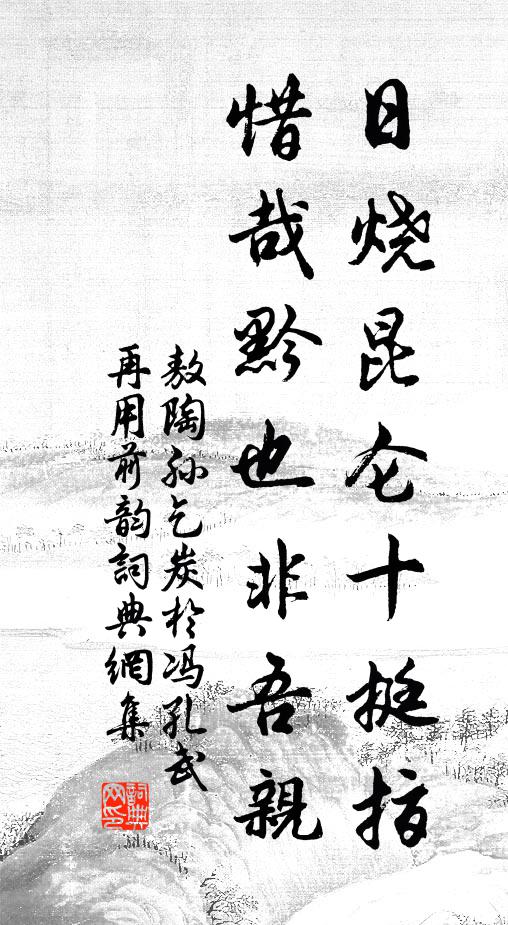 日烧昆仑十挺指
惜哉黔也非吾親
敖陶孙乞炭於冯孔武
再用前韵詞典網集
詞典网印